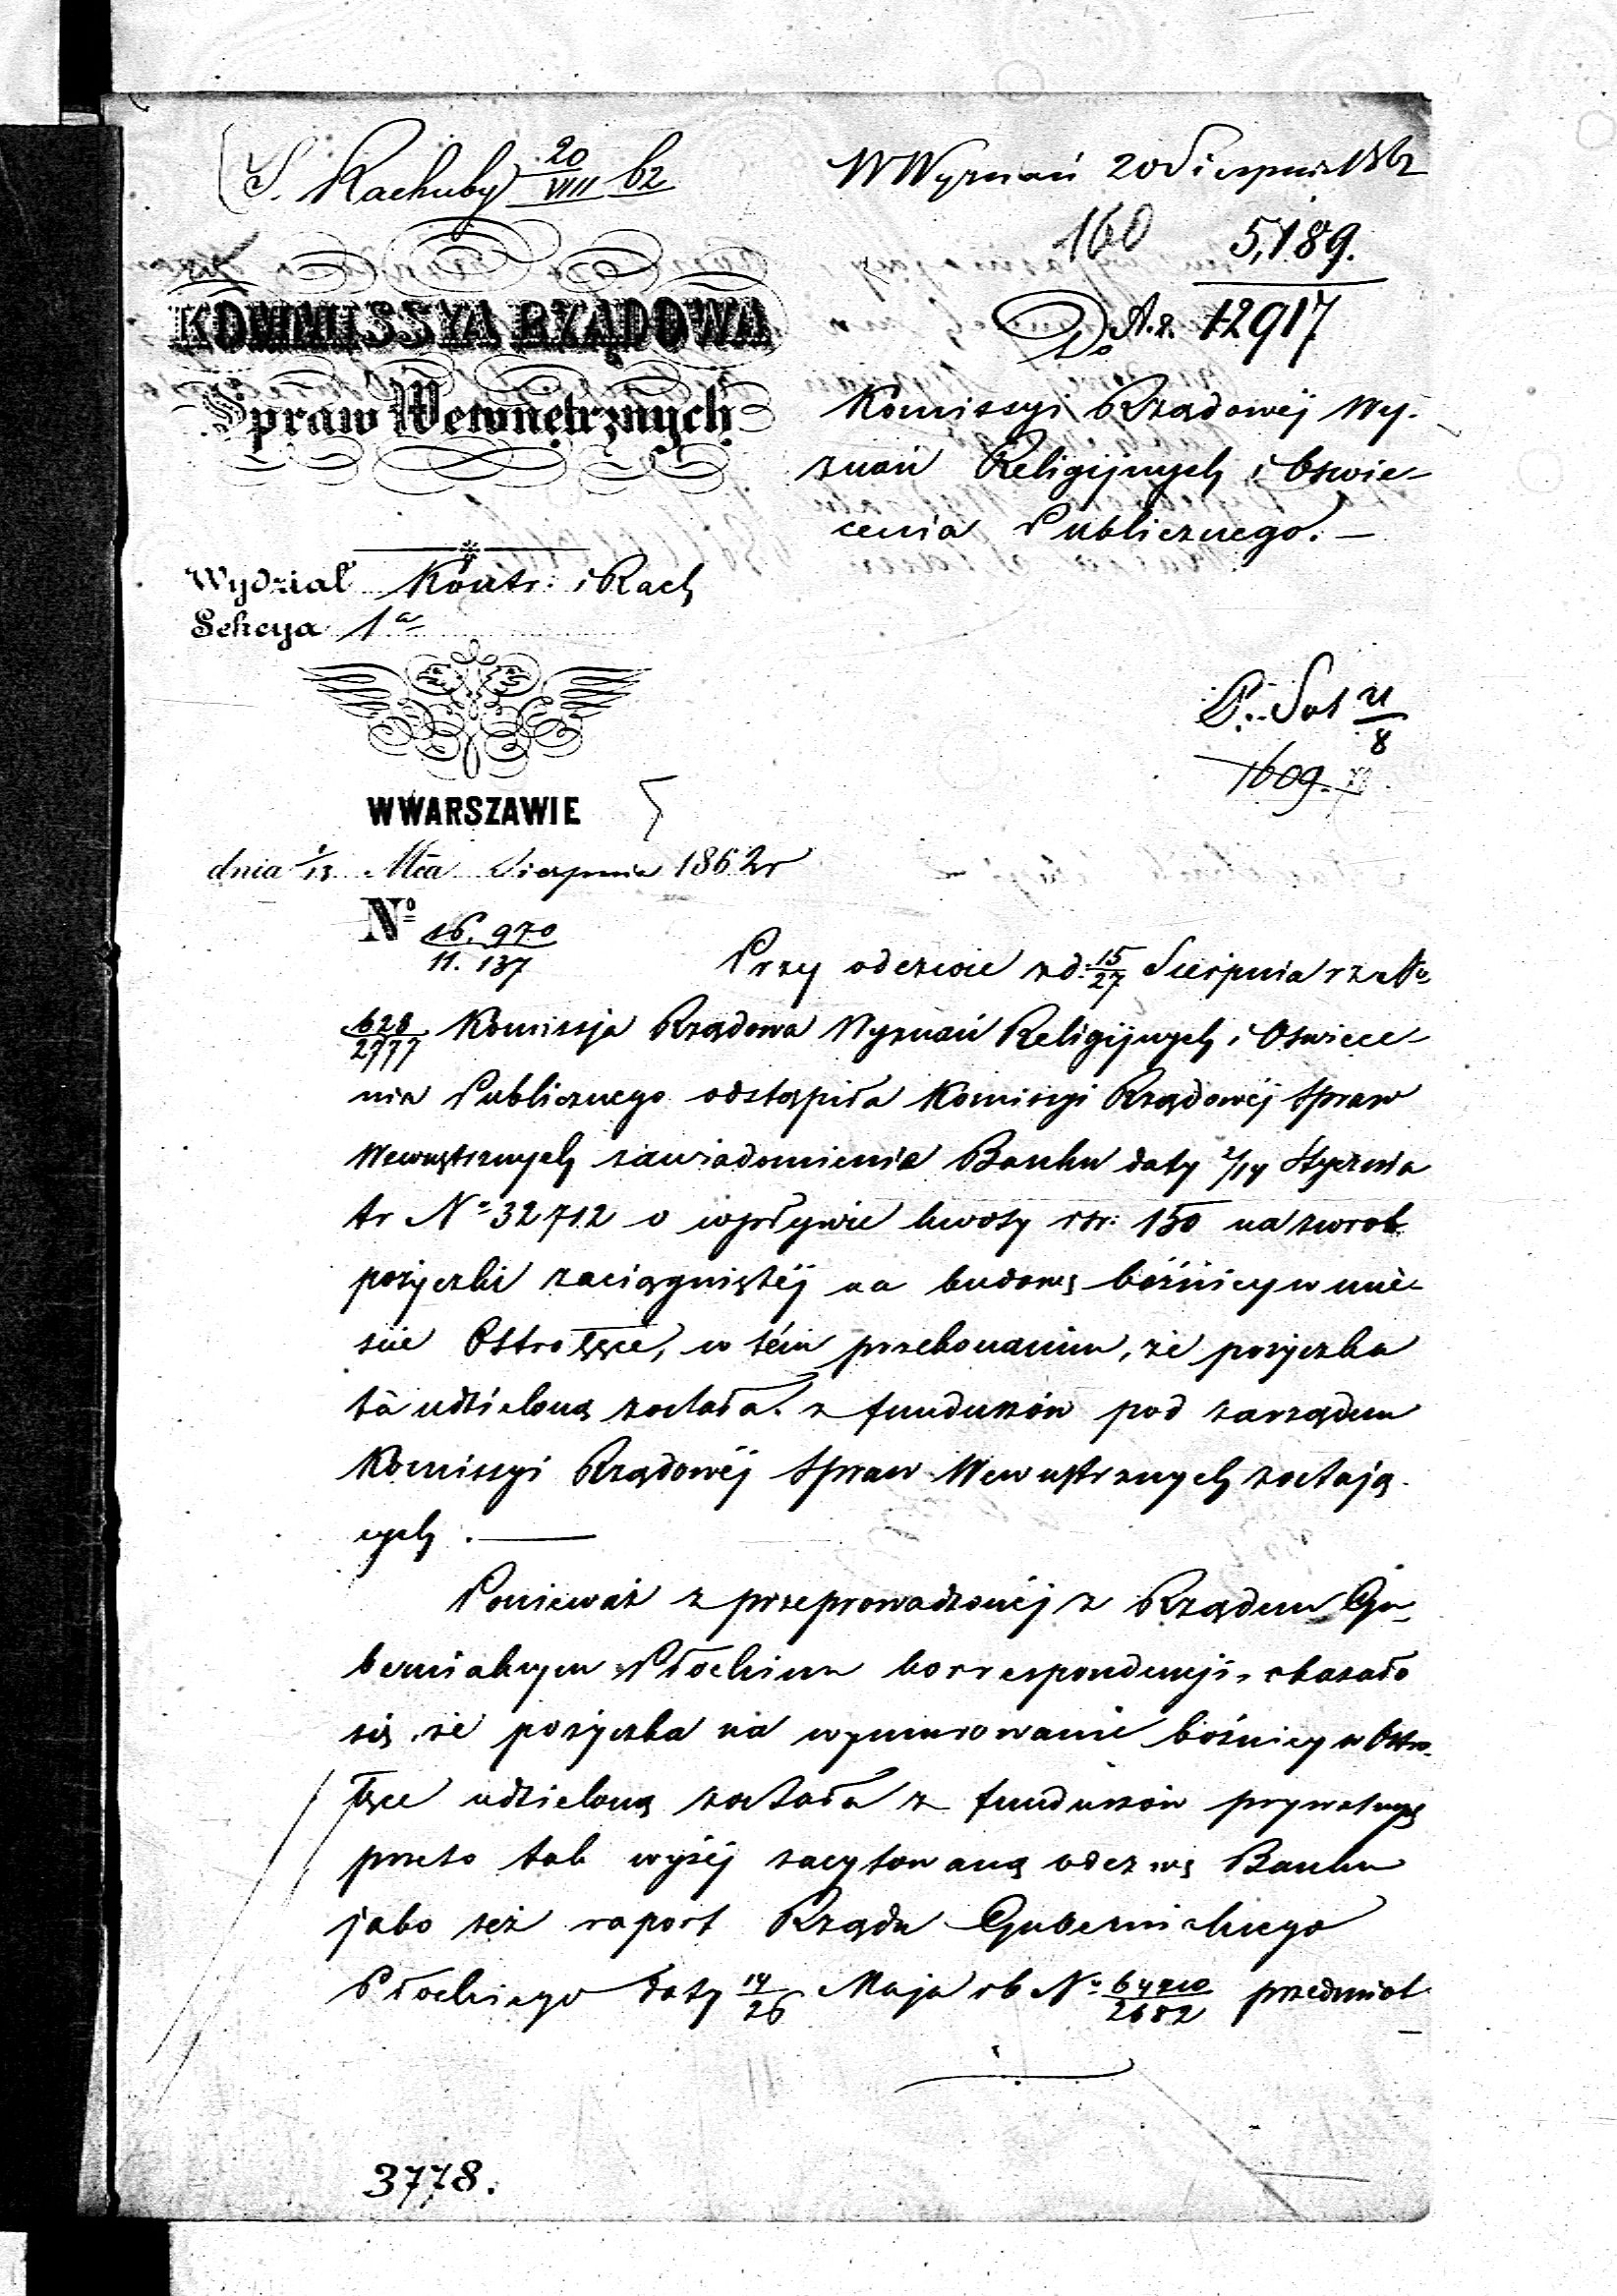 S. Rachuby 20/VIII 62
W Wyznań 20 Sierpnia 1862
160 5,189.
12917
KOMMISSYA RZĄDOWA
Spraw Wewnętrznych
Do
Komissyi Rządowéj Wy-
znań Religijnych i Oświe-
cenia Publicznego. —
Wydział Kontr: i Rach
Sekcya 1a
21/8
1609.
W WARSZAWIE
dnia 1/13 Mca Sierpnia 1862r
No 16.970/11.137
Przy odezwie z d. 15/27 Sierpnia r z No
628/2777 Komissja Rządowa Wyznań Religijnych i Oświece-
nia Publicznego odstąpiła Komissyi Rządowéj Spraw
Wewnętrznych zawiadomienie Banku daty 2/14 Stycznia
tr No 32712 o wpływie kwoty rsr: 150 na zwrot
pożyczki zaciągniętéj na budowę bóźnicy w mie-
ście Ostrołęce, w tém przekonaniu, że pożyczka
ta udzieloną została z funduszów pod zarządem
Komissyi Rządowéj Spraw Wewnętrznych zostają-
cych. —
Ponieważ z przeprowadzonéj z Rządem Gu-
bernialnym Płockim korrespondencji, okazało
się, że pożyczka na wymurowanie bóźnicy w Ostro-
łęce udzieloną została z funduszów prywatnych
przeto tak wyżéj zacytowaną odezwę Banku
jako też raport Rządu Gubernialnego
Płockiego daty 14/26 Maja rb No 2682 przedmiot
3778.